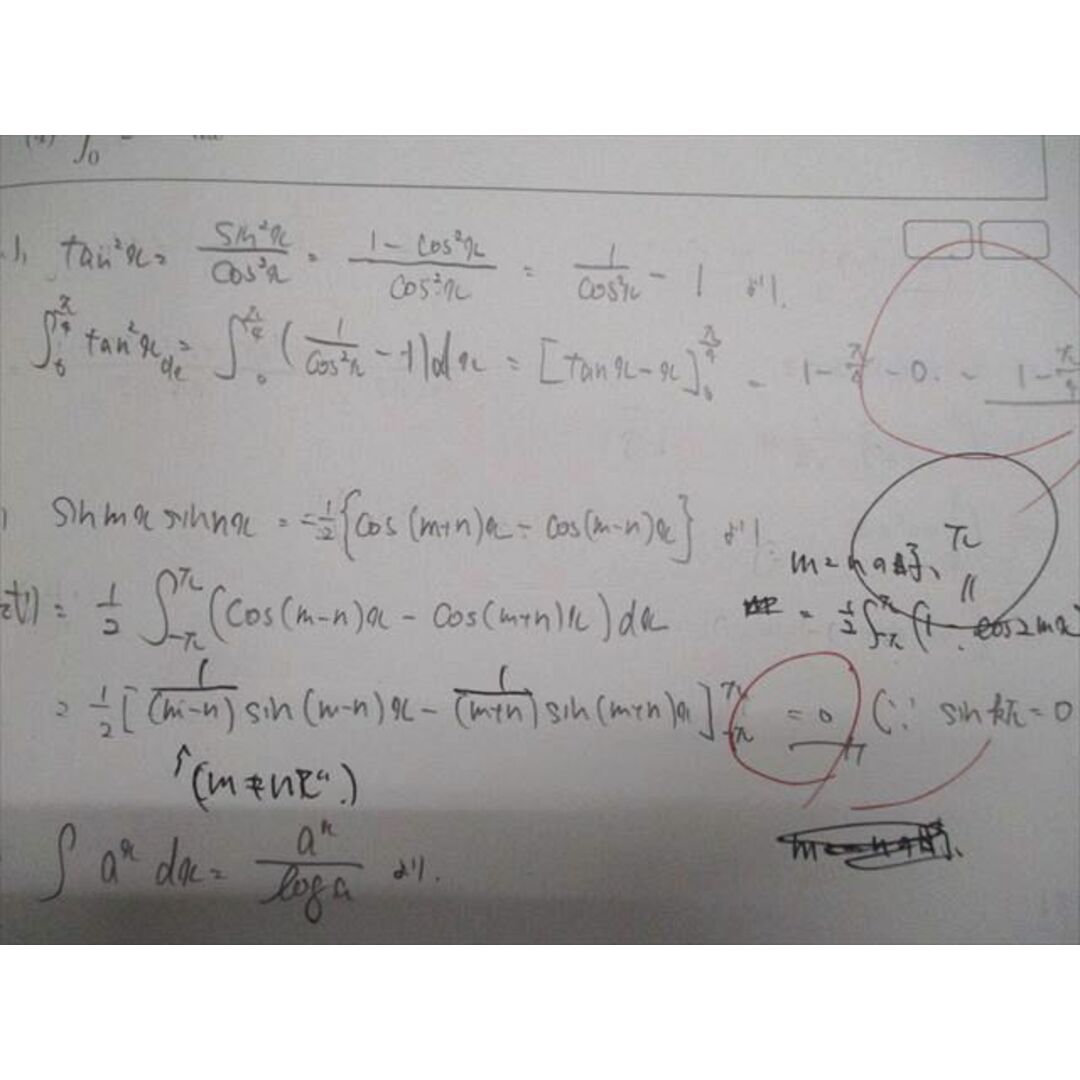 ∫0
tan²x = sin²x/cos²x = (1 - cos²x)/cos²x = 1/cos²x - 1 より.
∫0^(π/4) tan²x dx = ∫0^(π/4) (1/cos²x - 1) dx = [tan x - x]0^(π/4) = 1 - π/4 - 0. = 1 - π/4
sin mx sin nx = -1/2 {cos(m+n)x - cos(m-n)x} より.
m = n の時、
π
(与式) = 1/2 ∫-π^π (cos(m-n)x - cos(m+n)x) dx
= 1/2 ∫-π^π (1 - cos2mx
= 1/2 [1/(m-n) sin(m-n)x - 1/(m+n) sin(m+n)x]-π^π = 0 (∵ sin kπ = 0
↑(m ≠ n
∫ a^x dx = a^x/log a より.